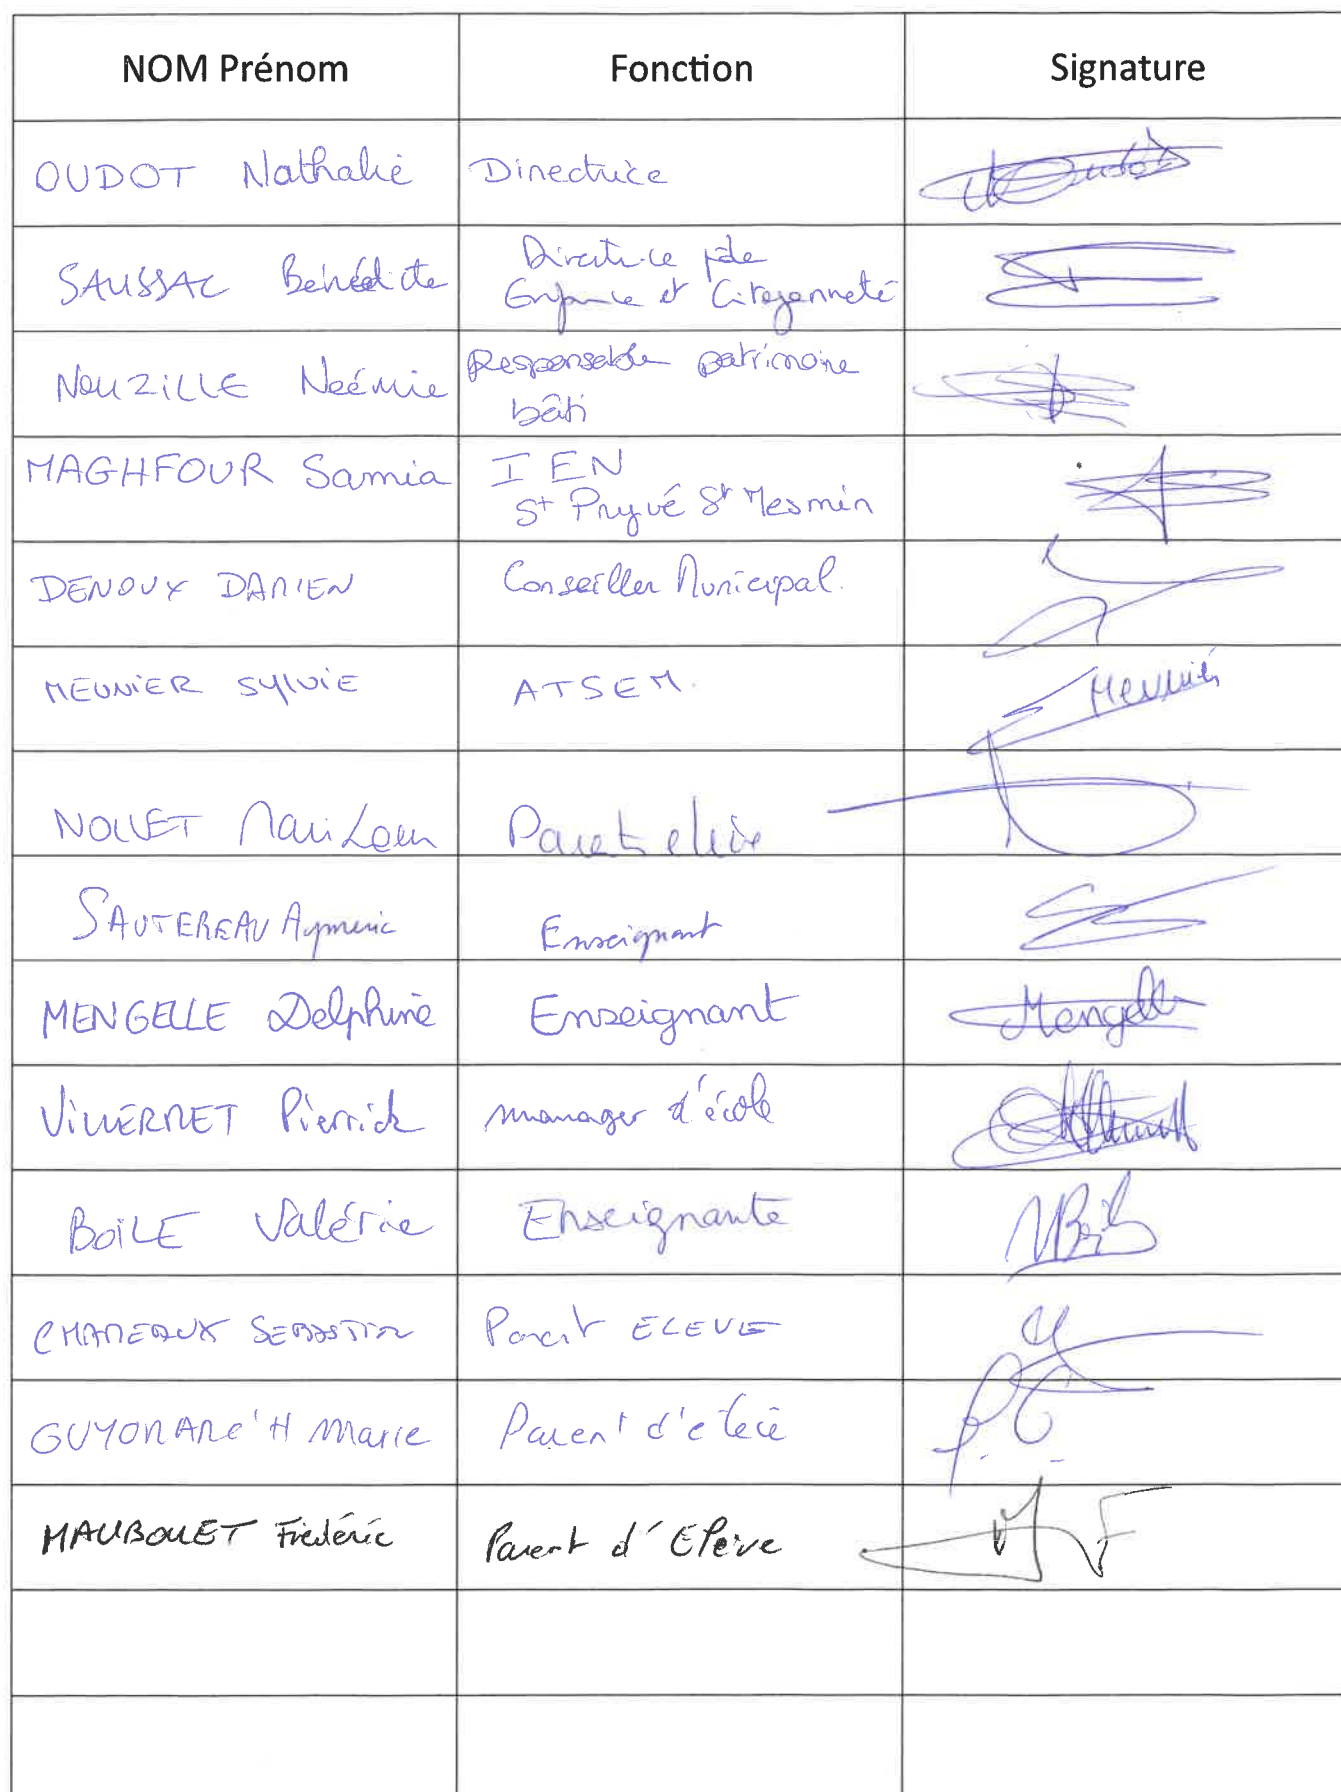 NOM Prénom Fonction Signature
OUDOT Nathalie Directrice Oudot
SAUSSAC Bénédicte Directrice pôle
Enfance et Citoyenneté
NOUZILLE Noémie Responsable patrimoine
bâti
MAGHFOUR Samia IEN
St Pryvé St Mesmin
DENOUX DAMIEN Conseiller Municipal.
MEUNIER SYLVIE ATSEM. Meunier
NOLLET Parent élève
SAUTEREAU Aymeric Enseignant
MENGELLE Delphine Enseignant Mengelle
VILLERMET Pierrick manager d'école
BOILE Valérie Enseignante VBoile
SEBASTIEN Parent ELEVE
Marie Parent d'élève
MAUBOUET Frédéric Parent d'Elève